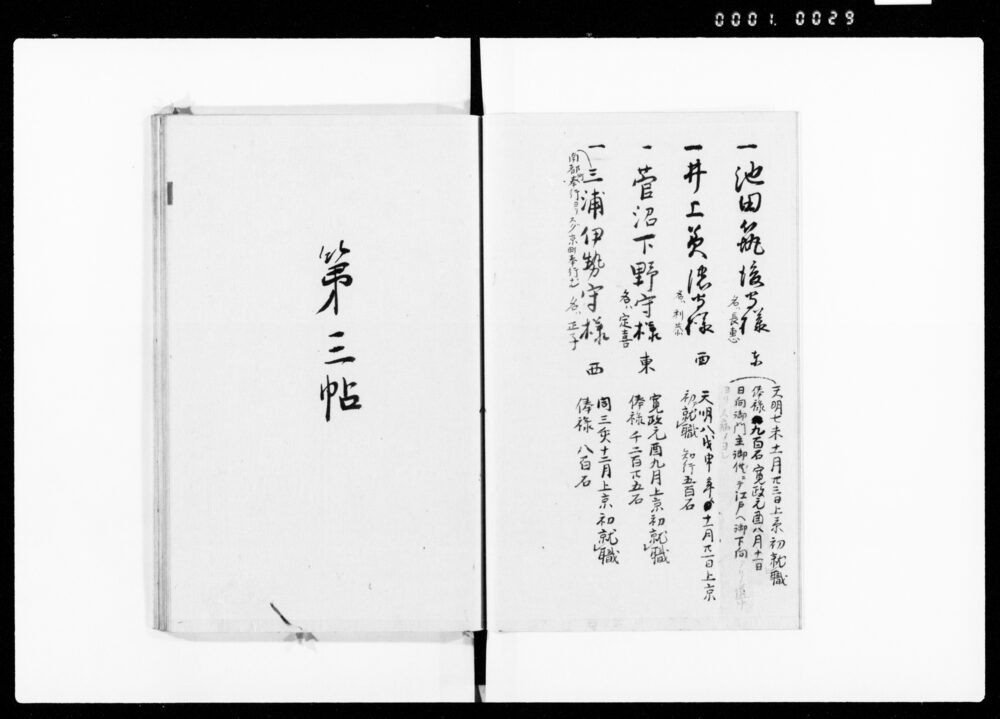 0001.0029
一池田筑後守様 東
名ハ長恵
天明七未十一月廿三日上京初就職
俸禄九百石寛政元酉八月十一日
日向御門主御代ニテ江戸ヘ御下向
一井上美濃守様 西
名ハ利恭
天明八戊申年十一月廿一日上京
初就職 知行五百石
一菅沼下野守様 東
名ハ定喜
寛政元酉九月上京初就職
俸禄千二百廿五石
一三浦伊勢守様 西
南都奉行ヨリスグ京町奉行
名ハ正子
同三亥十二月上京初就職
俸禄八百石
第三帖